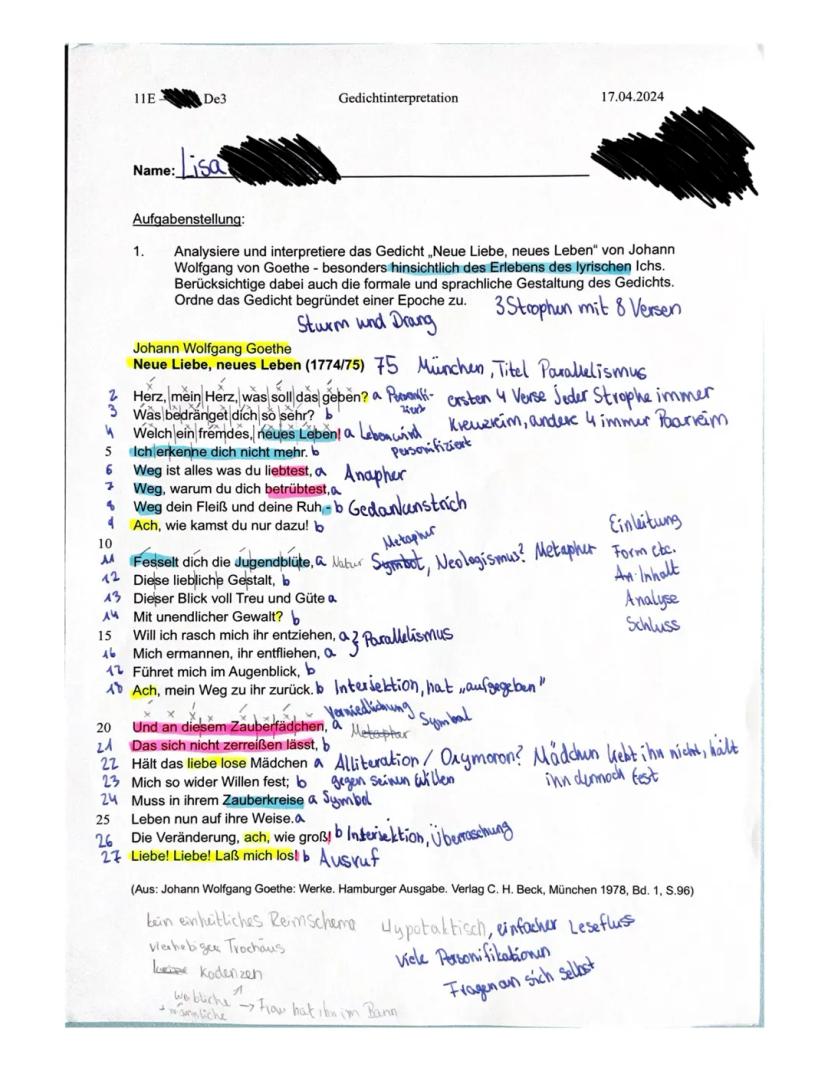 11E De3 Gedichtinterpretation 17.04.2024
Name: Lisa
Aufgabenstellung:
1. Analysiere und interpretiere das Gedicht „Neue Liebe, neues Leben" von Johann
Wolfgang von Goethe - besonders hinsichtlich des Erlebens des lyrischen Ichs.
Berücksichtige dabei auch die formale und sprachliche Gestaltung des Gedichts.
Ordne das Gedicht begründet einer Epoche zu. 3 Strophen mit 8 Versen
Sturm und Drang
Johann Wolfgang Goethe
Neue Liebe, neues Leben (1774/75) 75 München, Titel Parallelismus
2 Herz, mein Herz, was soll das geben? a Personifi- ersten 4 Verse jeder Strophe immer
ziert
3 Was bedränget dich so sehr? b Kreuzreim, andere 4 immer Paarreim
4 Welch ein fremdes, neues Leben! a Leben wird
personifiziert
5 Ich erkenne dich nicht mehr. b
6 Weg ist alles was du liebtest, a Anapher
7 Weg, warum du dich betrübtest, a
8 Weg dein Fleiß und deine Ruh - b Gedankenstrich
9 Ach, wie kamst du nur dazu! b
Einleitung
10
Metapher
11 Fesselt dich die Jugendblüte, a Natur Symbol, Neologismus? Metapher Form etc.
12 Diese liebliche Gestalt, b An. Inhalt
13 Dieser Blick voll Treu und Güte a Analyse
14 Mit unendlicher Gewalt? b Schluss
15 Will ich rasch mich ihr entziehen, a } Parallelismus
16 Mich ermannen, ihr entfliehen, a
17 Führet mich im Augenblick, b
18 Ach, mein Weg zu ihr zurück. b Interjektion, hat „aufgegeben"
Verniedlichung
20 Und an diesem Zauberfädchen, a Metapher Symbol
21 Das sich nicht zerreißen lässt, b
22 Hält das liebe lose Mädchen a Alliteration / Oxymoron? Mädchen liebt ihn nicht, hält
23 Mich so wider Willen fest; b gegen seinen Willen ihn dennoch fest
24 Muss in ihrem Zauberkreise a Symbol
25 Leben nun auf ihre Weise. a
26 Die Veränderung, ach, wie groß! b Interjektion, Überraschung
27 Liebe! Liebe! Laß mich los! b Ausruf
(Aus: Johann Wolfgang Goethe: Werke. Hamburger Ausgabe. Verlag C. H. Beck, München 1978, Bd. 1, S.96)
kein einheitliches Reimschema Hypotaktisch, einfacher Lesefluss
vierhebiger Trochäus Viele Personifikationen
Kadenzen Fragen an sich selbst
weibliche
+ männliche → Frau hat ihn im Bann